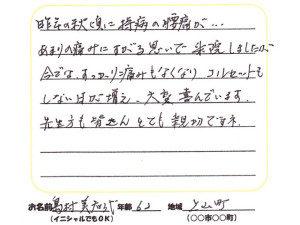 昨年の秋頃に持病の腰痛が…
あまりの痛みにすがる思いで来院しましたが
今では、すっかり痛みもなくなり コルセットも
しない日が増え、大変喜んでいます。
先生方も皆さんとても親切ですネ。
お名前 島村 美 年齢 62 地域 上山町
(イニシャルでもOK) (〇〇市〇〇町)